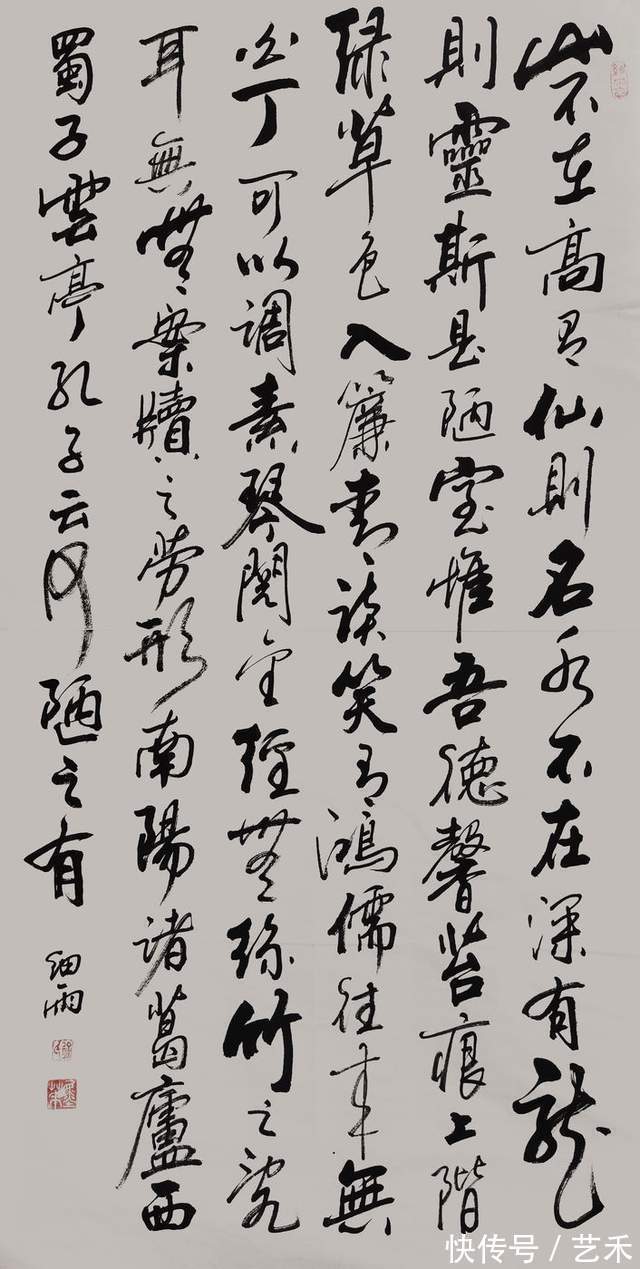 山不在高有仙則名水不在深有龍
則靈斯是陋室惟吾德馨苔痕上階
綠草色入簾青談笑有鴻儒往來無
白丁可以調素琴閱金經無絲竹之亂
耳無無案牘之勞形南陽諸葛廬西
蜀子雲亭孔子云何陋之有
細雨
快传号 / 艺禾